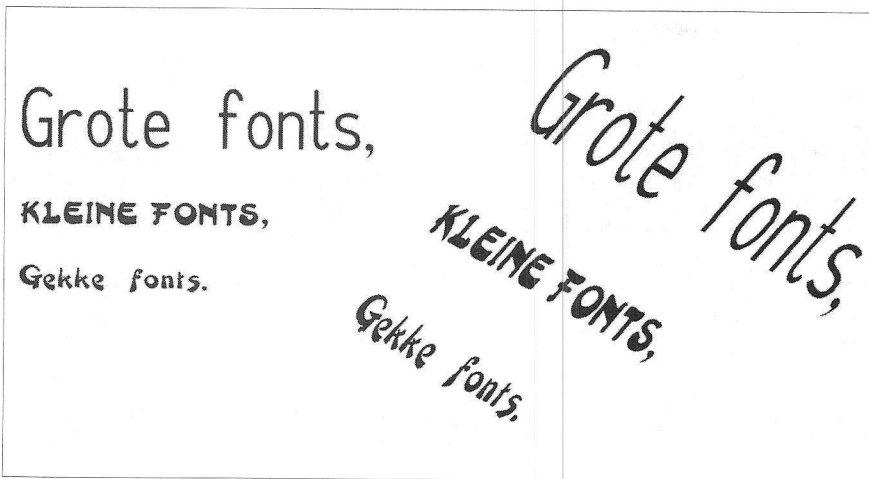 Grote fonts,
KLEINE FONTS,
Gekke fonts.
Grote fonts,
KLEINE FONTS,
Gekke fonts.